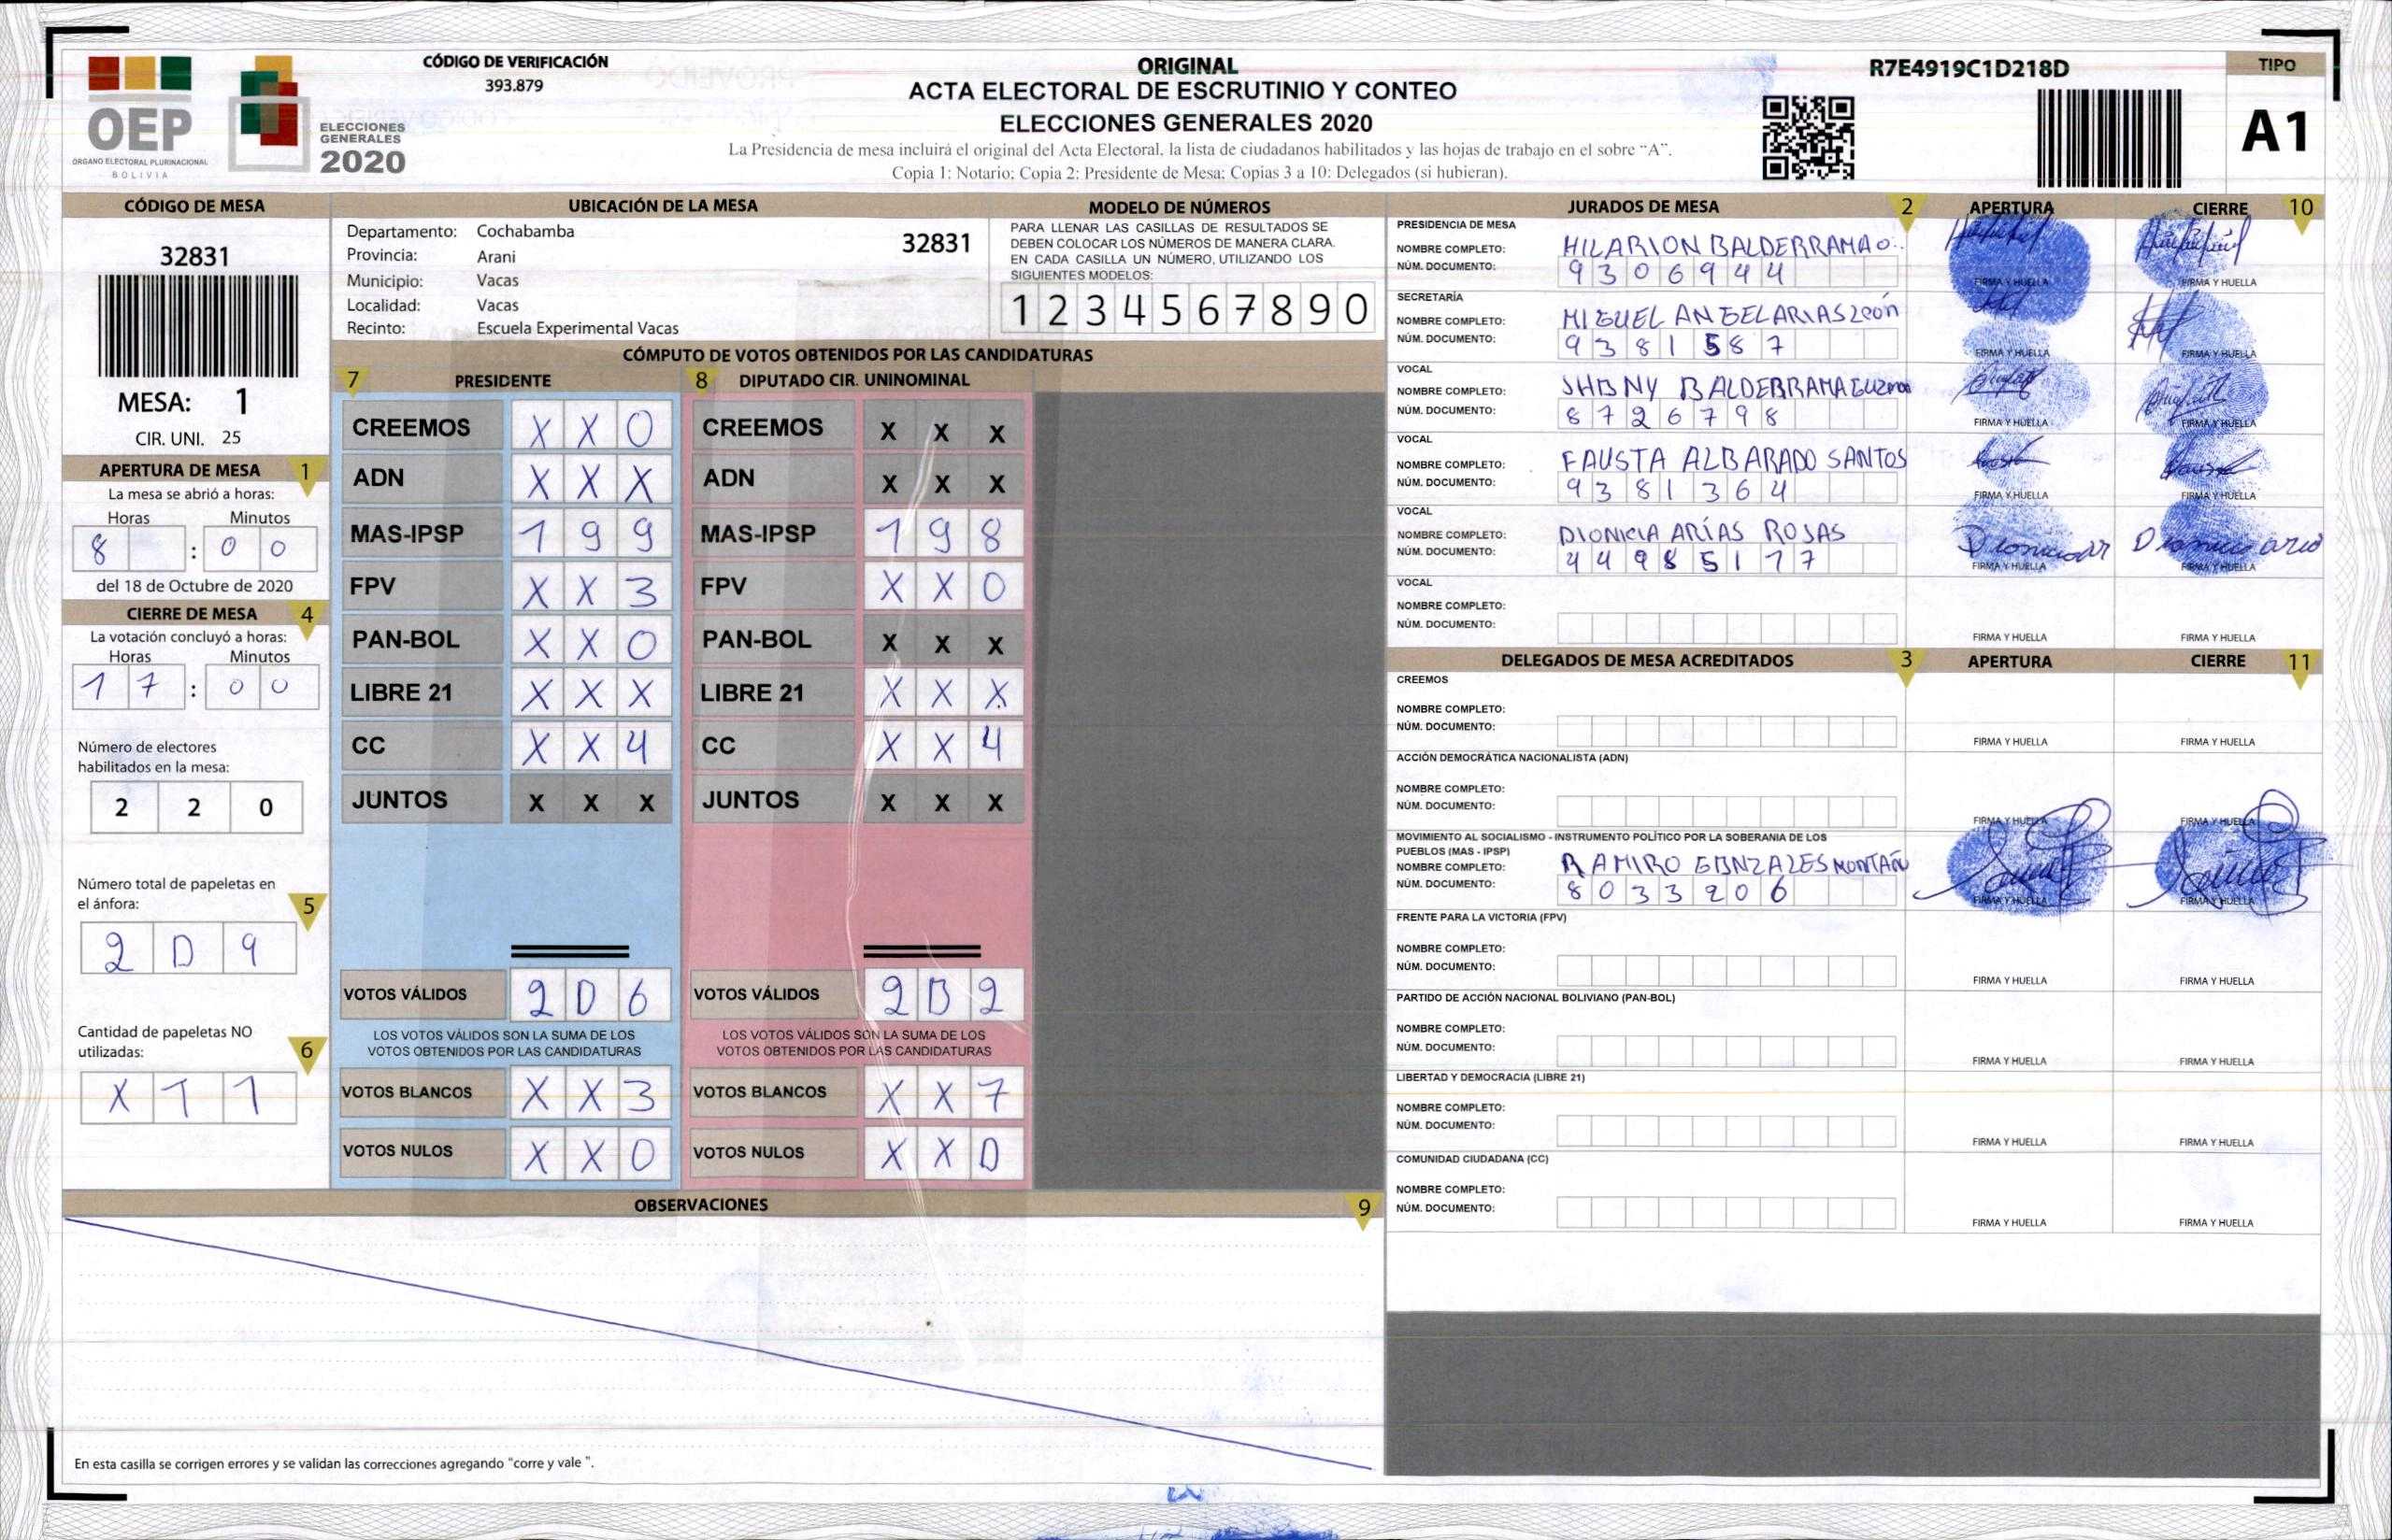 OEP
ÓRGANO ELECTORAL PLURINACIONAL
BOLIVIA
ELECCIONES
GENERALES
2020
CÓDIGO DE VERIFICACIÓN
393.879
ORIGINAL
ACTA ELECTORAL DE ESCRUTINIO Y CONTEO
ELECCIONES GENERALES 2020
La Presidencia de mesa incluirá el original del Acta Electoral, la lista de ciudadanos habilitados y las hojas de trabajo en el sobre “A”.
Copia 1: Notario; Copia 2: Presidente de Mesa; Copias 3 a 10: Delegados (si hubieran).
R7E4919C1D218D
TIPO
A1
CÓDIGO DE MESA
32831
MESA: 1
CIR. UNI. 25
APERTURA DE MESA 1
La mesa se abrió a horas:
Horas Minutos
8 : 0 0
del 18 de Octubre de 2020
CIERRE DE MESA 4
La votación concluyó a horas:
Horas Minutos
1 7 : 0 0
Número de electores
habilitados en la mesa:
2 2 0
Número total de papeletas en
el ánfora: 5
2 0 9
Cantidad de papeletas NO
utilizadas: 6
X 1 1
UBICACIÓN DE LA MESA
Departamento: Cochabamba 32831
Provincia: Arani
Municipio: Vacas
Localidad: Vacas
Recinto: Escuela Experimental Vacas
MODELO DE NÚMEROS
PARA LLENAR LAS CASILLAS DE RESULTADOS SE
DEBEN COLOCAR LOS NÚMEROS DE MANERA CLARA.
EN CADA CASILLA UN NÚMERO, UTILIZANDO LOS
SIGUIENTES MODELOS:
1 2 3 4 5 6 7 8 9 0
CÓMPUTO DE VOTOS OBTENIDOS POR LAS CANDIDATURAS
7 PRESIDENTE 8 DIPUTADO CIR. UNINOMINAL
CREEMOS X X 0 CREEMOS X X X
ADN X X X ADN X X X
MAS-IPSP 1 9 9 MAS-IPSP 1 9 8
FPV X X 3 FPV X X 0
PAN-BOL X X 0 PAN-BOL X X X
LIBRE 21 X X X LIBRE 21 X X X
CC X X 4 CC X X 4
JUNTOS X X X JUNTOS X X X
VOTOS VÁLIDOS 2 0 6 VOTOS VÁLIDOS 2 0 2
LOS VOTOS VÁLIDOS SON LA SUMA DE LOS LOS VOTOS VÁLIDOS SON LA SUMA DE LOS
VOTOS OBTENIDOS POR LAS CANDIDATURAS VOTOS OBTENIDOS POR LAS CANDIDATURAS
VOTOS BLANCOS X X 3 VOTOS BLANCOS X X 7
VOTOS NULOS X X 0 VOTOS NULOS X X 0
OBSERVACIONES 9
En esta casilla se corrigen errores y se validan las correcciones agregando "corre y vale ".
JURADOS DE MESA 2 APERTURA CIERRE 10
PRESIDENCIA DE MESA
NOMBRE COMPLETO: HILARION BALDERRAMA O..
NÚM. DOCUMENTO: 9306944
FIRMA Y HUELLA FIRMA Y HUELLA
SECRETARÍA
NOMBRE COMPLETO: MIGUEL ANGEL ARIAS León
NÚM. DOCUMENTO: 9381587
FIRMA Y HUELLA FIRMA Y HUELLA
VOCAL
NOMBRE COMPLETO: JHONY BALDERRAMA GUZMAN
NÚM. DOCUMENTO: 8726798
FIRMA Y HUELLA FIRMA Y HUELLA
VOCAL
NOMBRE COMPLETO: FAUSTA ALBARADO SANTOS
NÚM. DOCUMENTO: 9381364
FIRMA Y HUELLA FIRMA Y HUELLA
VOCAL
NOMBRE COMPLETO: DIONICIA ARÍAS ROJAS
NÚM. DOCUMENTO: 44985177
FIRMA Y HUELLA FIRMA Y HUELLA
VOCAL
NOMBRE COMPLETO:
NÚM. DOCUMENTO:
FIRMA Y HUELLA FIRMA Y HUELLA
DELEGADOS DE MESA ACREDITADOS 3 APERTURA CIERRE 11
CREEMOS
NOMBRE COMPLETO:
NÚM. DOCUMENTO:
FIRMA Y HUELLA FIRMA Y HUELLA
ACCIÓN DEMOCRÁTICA NACIONALISTA (ADN)
NOMBRE COMPLETO:
NÚM. DOCUMENTO:
FIRMA Y HUELLA FIRMA Y HUELLA
MOVIMIENTO AL SOCIALISMO - INSTRUMENTO POLÍTICO POR LA SOBERANIA DE LOS
PUEBLOS (MAS - IPSP)
NOMBRE COMPLETO: RAMIRO GONZALES MONTAÑO
NÚM. DOCUMENTO: 8033206
FIRMA Y HUELLA FIRMA Y HUELLA
FRENTE PARA LA VICTORIA (FPV)
NOMBRE COMPLETO:
NÚM. DOCUMENTO:
FIRMA Y HUELLA FIRMA Y HUELLA
PARTIDO DE ACCIÓN NACIONAL BOLIVIANO (PAN-BOL)
NOMBRE COMPLETO:
NÚM. DOCUMENTO:
FIRMA Y HUELLA FIRMA Y HUELLA
LIBERTAD Y DEMOCRACIA (LIBRE 21)
NOMBRE COMPLETO:
NÚM. DOCUMENTO:
FIRMA Y HUELLA FIRMA Y HUELLA
COMUNIDAD CIUDADANA (CC)
NOMBRE COMPLETO:
NÚM. DOCUMENTO:
FIRMA Y HUELLA FIRMA Y HUELLA